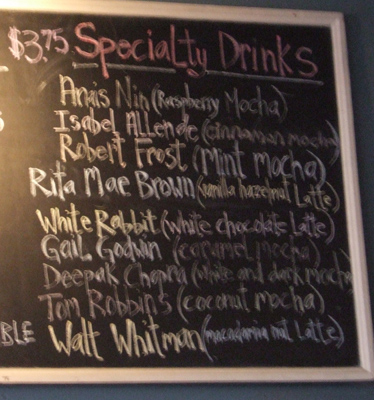 $3.75 Specialty Drinks
Anais Nin (Raspberry Mocha)
Isabel Allende (cinnamon mocha)
Robert Frost (Mint mocha)
Rita Mae Brown (vanilla hazelnut Latte)
White Rabbit (white chocolate Latte)
Gail Godwin (caramel mocha)
Deepak Chopra (white and dark mocha
Tom Robbins (coconut mocha)
BLE Walt Whitman (macadamia nut Latte)